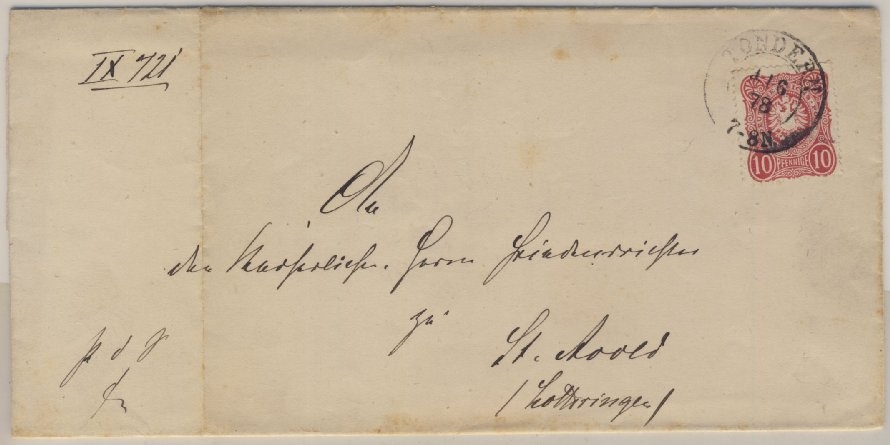 IX 721
TONDERN
11 6
78
7-8N.
10 PFENNIGE 10
An
den Kaiserlichen Herrn Friedensrichter
zu
St. Avold
(Lothringen)